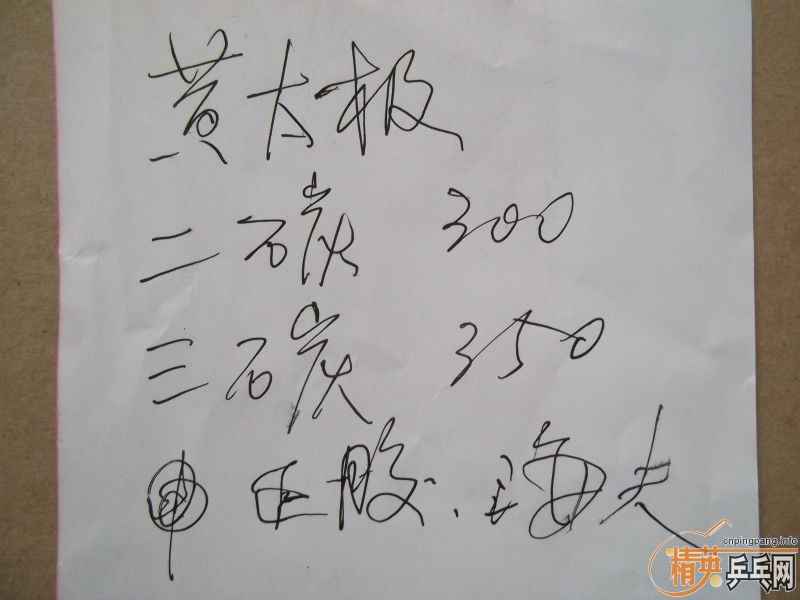 黄太极
二碳 300
三碳 350
正胶、海夫
cnpingpang.info
精英乒乓网